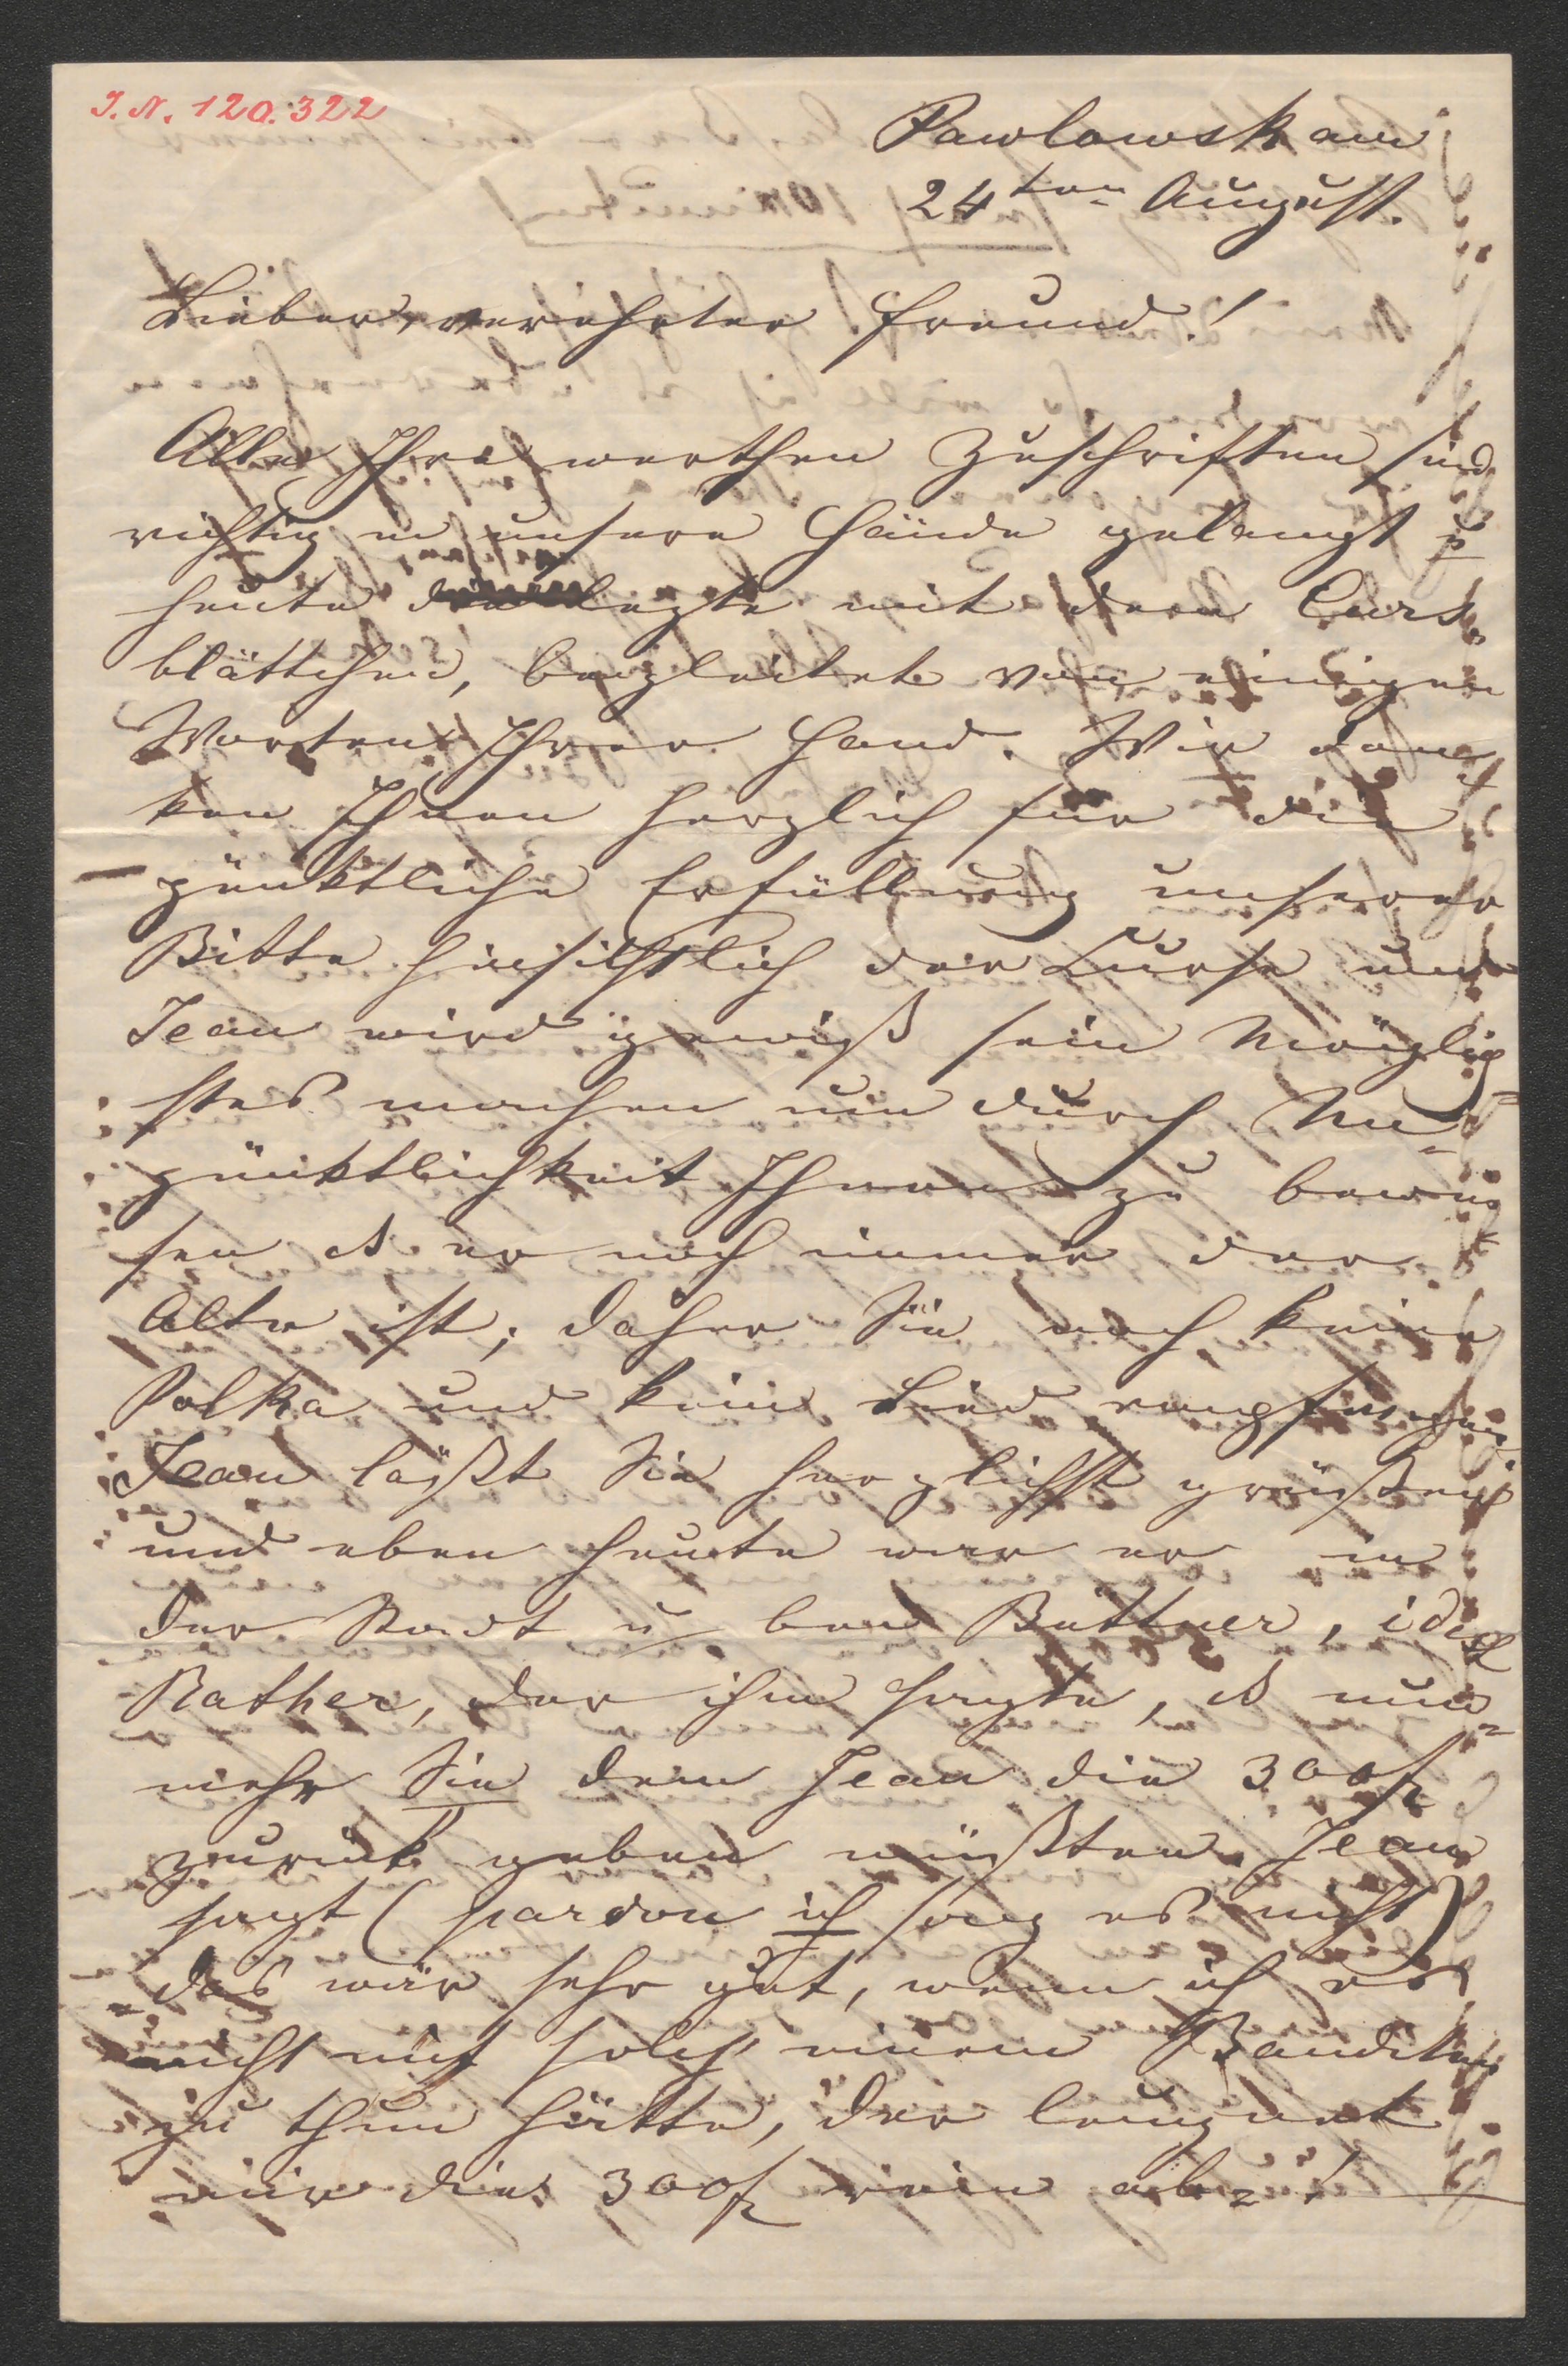 I.N. 120.322
Pawlowsk am
24ten August.
Lieber, verehrter Freund!
Alle Ihre werthen Zuschriften sind
richtig in unsere Hände gelangt u
heute die lezte mit dem Curs-
blättchen, begleitet von einigen
Worten Ihrer Hand. Wir dan-
ken Ihnen herzlich für die
pünktliche Erfüllung unserer
Bitte hinsichtlich der Curse und
Jean wird gewiß sein Möglich-
stes machen um durch Un-
pünktlichkeit Ihnen zu bewei-
sen d er noch immer der
Alte ist; daher Sie noch keine
Polka und kein Lied empfingen.
Jean läßt Sie herzlichst grüßen
und eben heute war er in
der Stadt u bei Büttner, idest
Rather, der ihm sagte, d nun-
mehr Sie dem Jean die 300f
zurück geben müßten. Jean
sagt (pardon ich sag es nicht)
"das wär sehr gut, wenn ich es
nicht mit solch' einem Banditen
zu thun hätte, der leugnet
mir die 300f rein ab"!